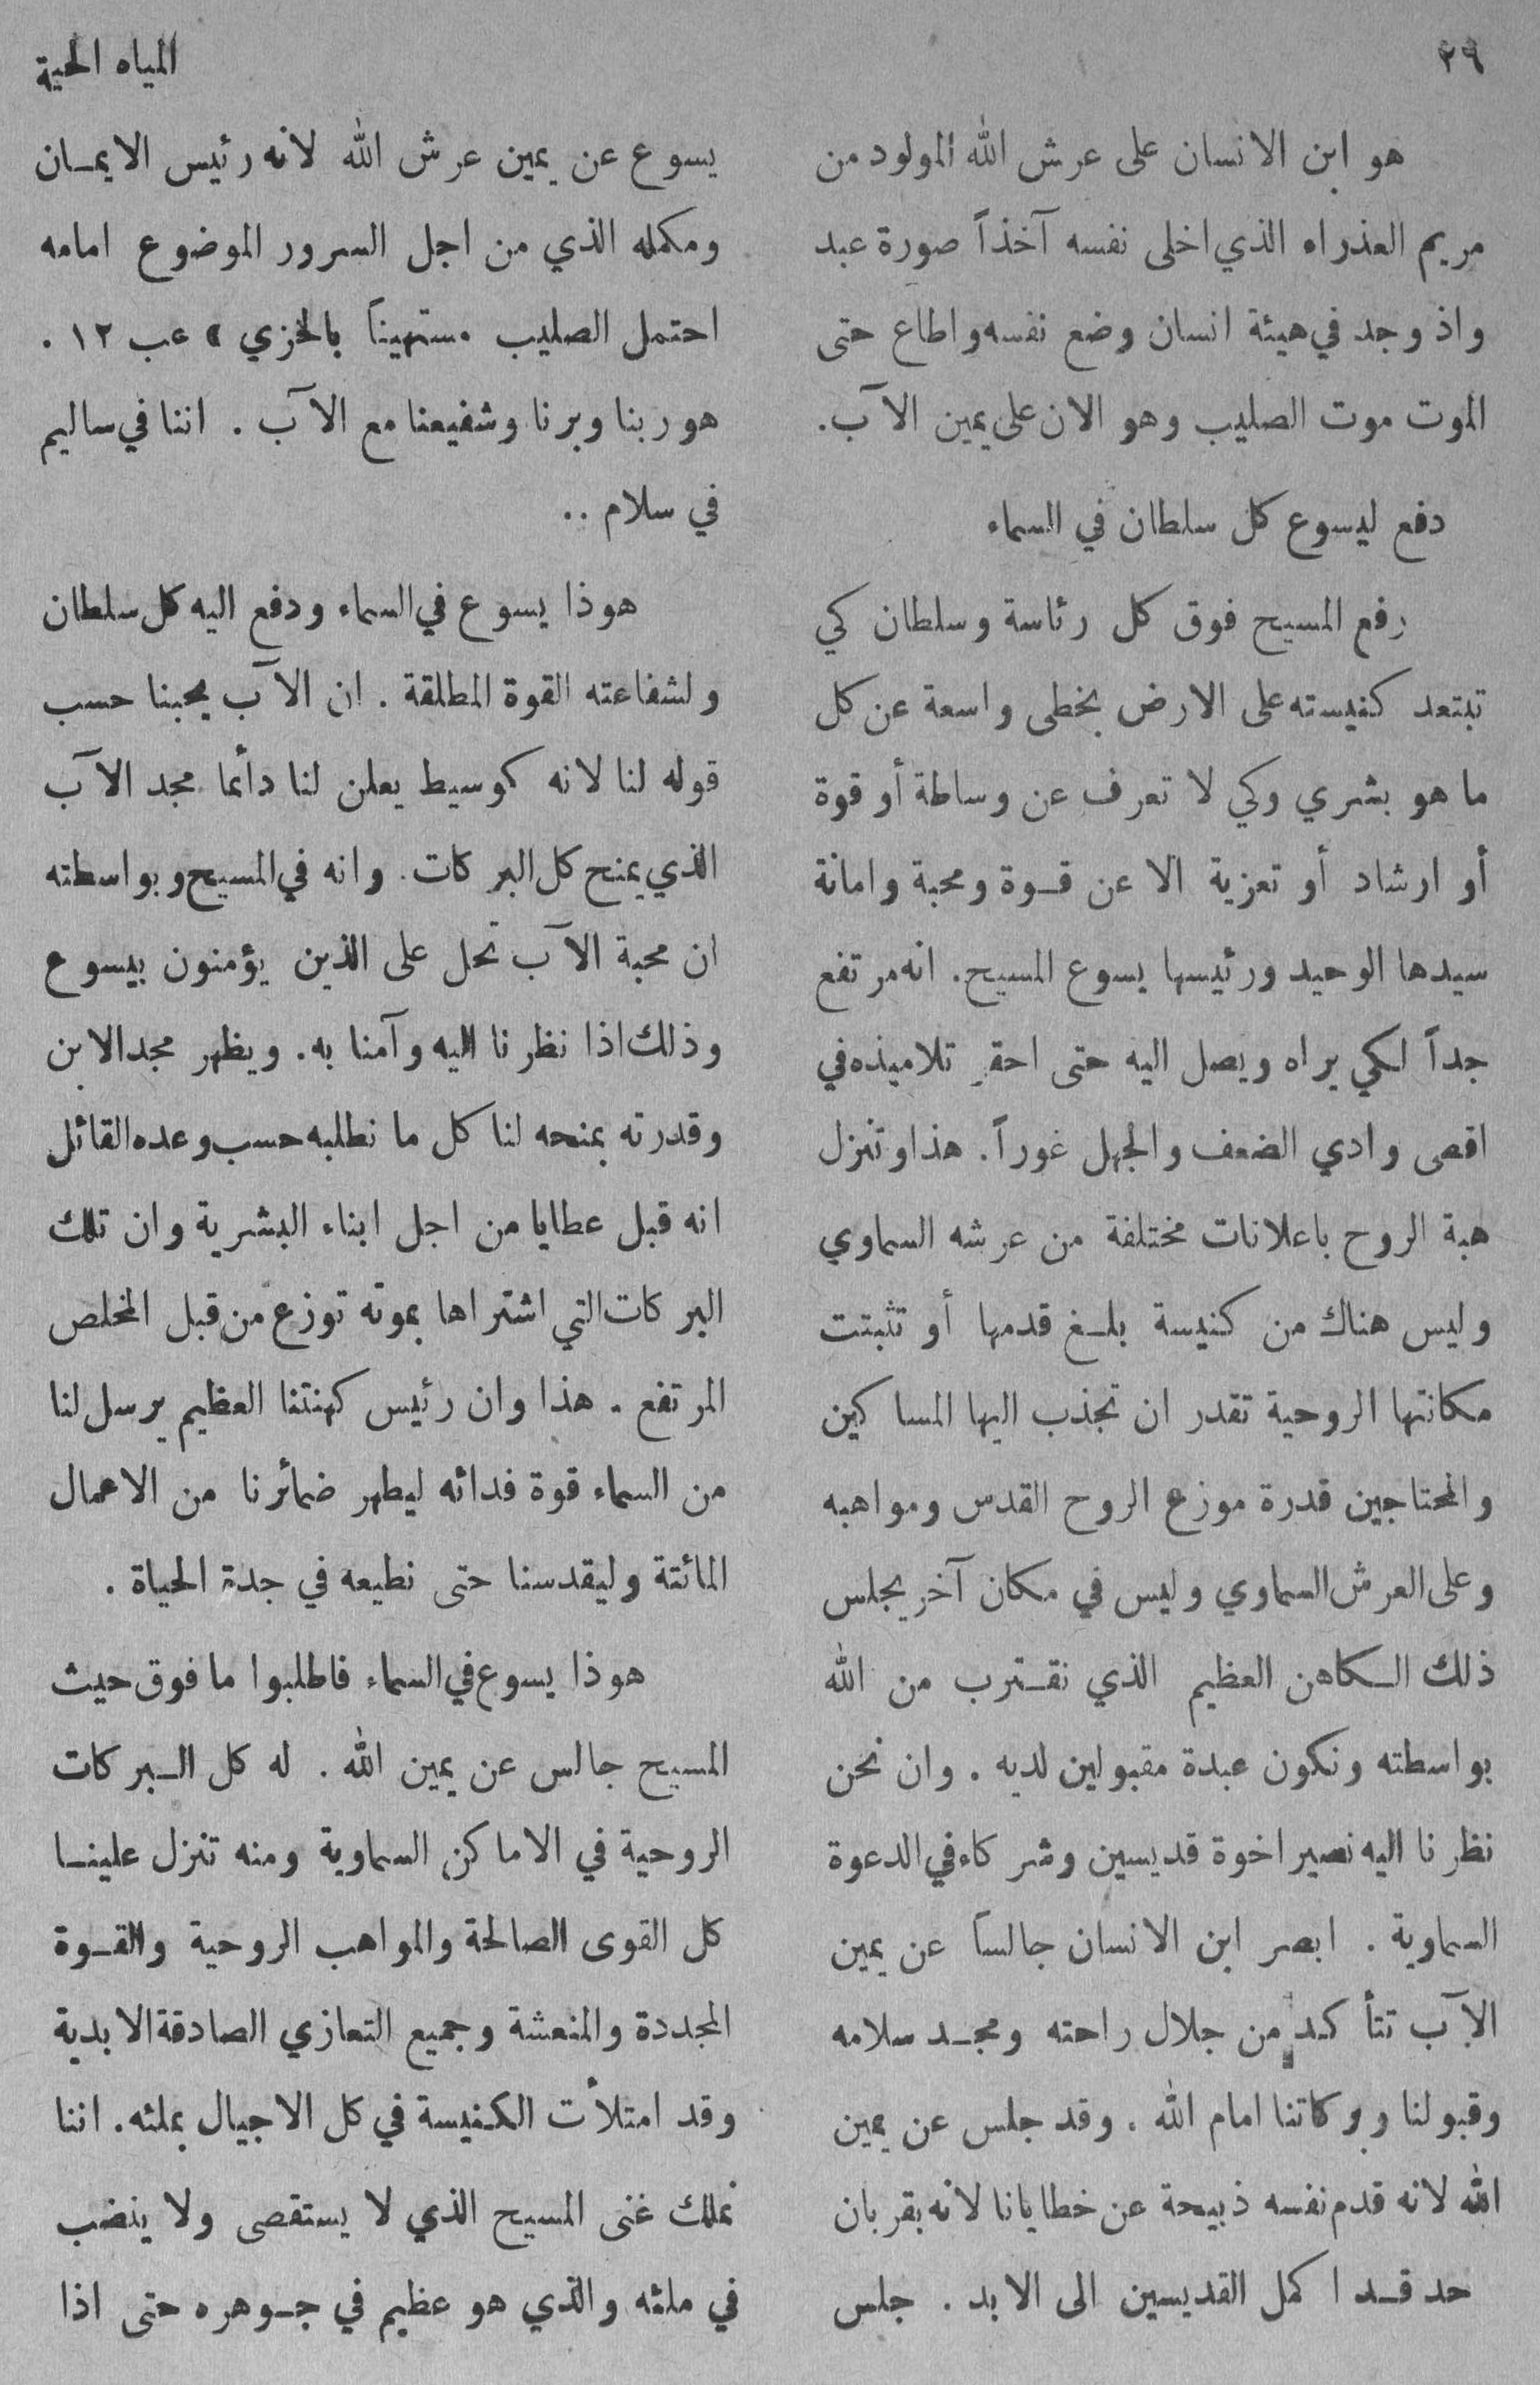 ٢٦
المياه الحية
هو ابن الانسان على عرش الله المولود من
مريم العذراء الذي اخلى نفسه آخذاً صورة عبد
واذ وجد في هيئة انسان وضع نفسه واطاع حتى
الموت موت الصليب وهو الان على يمين الآب.
دفع ليسوع كل سلطان في السماء
رفع المسيح فوق كل رئاسة وسلطان كي
تبتعد كنيسته على الارض بخطى واسعة عن كل
ما هو بشري وكي لا تعرف عن وساطة أو قوة
أو ارشاد أو تعزية الا عن قوة ومحبة وامانة
سيدها الوحيد ورئيسها يسوع المسيح. انه مرتفع
جداً لكي يراه ويصل اليه حتى احقر تلاميذه في
اقصى وادي الضعف والجهل غوراً. هذا وتنزل
هبة الروح باعلانات مختلفة من عرشه السماوي
وليس هناك من كنيسة بلغ قدمها أو تثبتت
مكانتها الروحية تقدر ان تجذب اليها المساكين
والمحتاجين قدرة موزع الروح القدس ومواهبه
وعلى العرش السماوي وليس في مكان آخر يجلس
ذلك الكاهن العظيم الذي نقترب من الله
بواسطته ونكون عبدة مقبولين لديه. وان نحن
نظرنا اليه نصير اخوة قديسين وشركاء في الدعوة
السماوية. ابصر ابن الانسان جالساً عن يمين
الآب تتأكد من جلال راحته ومجد سلامه
وقبولنا وبركاتنا امام الله. وقد جلس عن يمين
الله لانه قدم نفسه ذبيحة عن خطايانا لانه بقربان
حد قد اكمل القديسين الى الابد. جلس
يسوع عن يمين عرش الله لانه رئيس الايمان
ومكمله الذي من اجل السرور الموضوع امامه
احتمل الصليب مستهيناً بالخزي » عب ١٢.
هو ربنا وبرنا وشفيعنا مع الآب. اننا في ساليم
في سلام ..
هوذا يسوع في السماء ودفع اليه كل سلطان
ولشفاعته القوة المطلقة. ان الآب يحبنا حسب
قوله لنا لانه كوسيط يعلن لنا دأئما مجد الآب
الذي يمنح كل البركات. وانه في المسيح وبواسطته
ان محبة الآب تحل على الذين يؤمنون بيسوع
وذلك اذا نظرنا اليه وآمنا به. ويظهر مجد الابن
وقدرته بمنحه لنا كل ما نطلبه حسب وعده القائل
انه قبل عطايا من اجل ابناء البشرية وان تلك
البركات التي اشتراها بموته توزع من قبل المخلص
المرتفع. هذا وان رئيس كهنتنا العظيم يرسل لنا
من السماء قوة فدائه ليطهر ضمائرنا من الاعمال
المائتة وليقدسنا حتى نطيعه في جدة الحياة.
هوذا يسوع في السماء فاطلبوا ما فوق حيث
المسيح جالس عن يمين الله. له كل البركات
الروحية في الاماكن السماوية ومنه تنزل علينا
كل القوى الصالحة والمواهب الروحية والقوة
المجددة والمنعشة وجميع التعازي الصادقة الابدية
وقد امتلأت الكنيسة في كل الاجيال بملئه. اننا
نملك غنى المسيح الذي لا يستقصى ولا ينضب
في ملئه والذي هو عظيم في جوهره حتى اذا